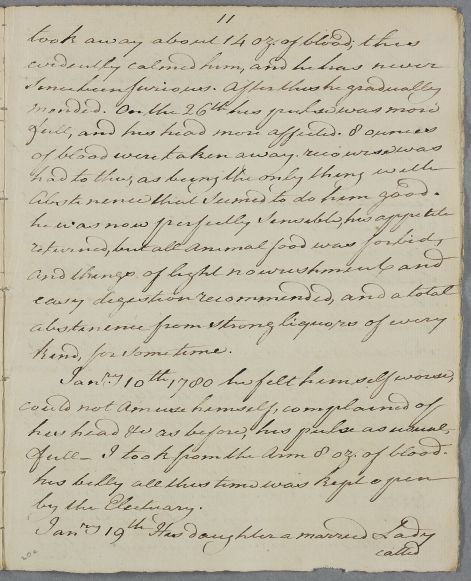 11
took away about 14 oz. of blood, this
evidently calmed him, and he has never
since been furious. After this he gradually
mended. On the 26th his pulse was more
full, and his head more affected. 8 ounces
of blood were taken away. recourse was
had to this, as being the only thing with
Abstinence that seemed to do him good.
he was now perfectly sensible, his appetite
returned, but all Animal food was forbid,
and things of light nourishment and
easy digestion recommended, and a total
abstinence from strong liquors of every
kind, for sometime.
Janry 10th 1780 he felt himself worse,
could not Amuse himself, complained of
his head &c as before, his pulse as usual,
full — I took from the Arm 8 oz. of blood.
his belly all this time was kept open
by the Electuary.
Janry 19th His daughter a married Lady
called